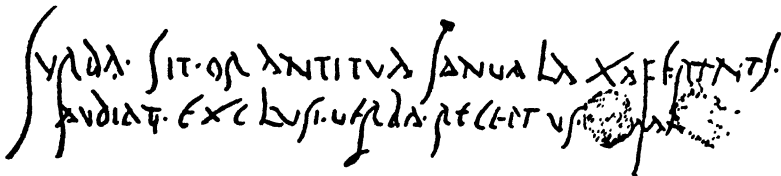 SURDA· SIT· ORANTI TUA IANUA LAXA FERENTI·
AUDIAT· EXCLUSI· UERBA· RECEPTUS·